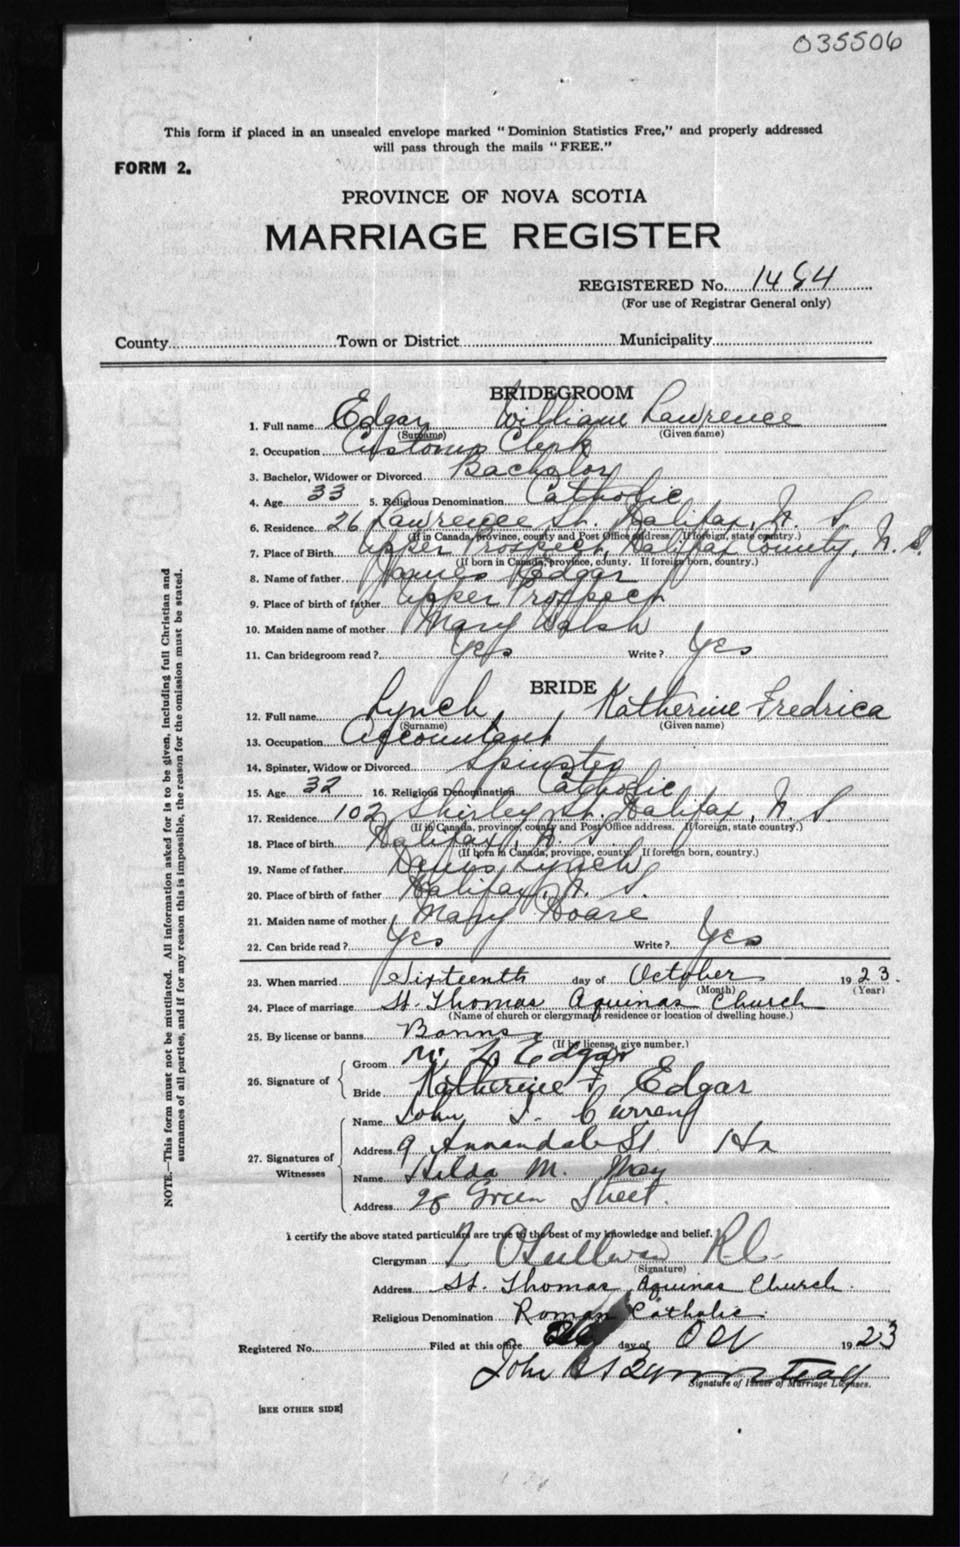 035506
This form if placed in an unsealed envelope marked "Dominion Statistics Free," and properly addressed
will pass through the mails "FREE."
FORM 2.
PROVINCE OF NOVA SCOTIA
MARRIAGE REGISTER
REGISTERED No. 1484
(For use of Registrar General only)
County Town or District Municipality
BRIDEGROOM
1. Full name Edgar William Lawrence
(Surname) (Given name)
2. Occupation Customs Clerk
3. Bachelor, Widower or Divorced Bachelor
4. Age 33 5. Religious Denomination Catholic
6. Residence 26 Lawrence St. Halifax, N. S.
(If in Canada, province, county and Post Office address. If foreign, state country.)
7. Place of Birth Upper Prospect, Halifax County, N. S.
(If born in Canada, province, county. If foreign born, country.)
8. Name of father James Edgar
9. Place of birth of father Upper Prospect
10. Maiden name of mother Mary Walsh
11. Can bridegroom read? Yes Write? Yes
BRIDE
12. Full name Lynch Katherine Fredrica
(Surname) (Given name)
13. Occupation Accountant
14. Spinster, Widow or Divorced Spinster
15. Age 32 16. Religious Denomination Catholic
17. Residence 102 Shirley St. Halifax, N. S.
(If in Canada, province, county and Post Office address. If foreign, state country.)
18. Place of birth Halifax, N. S.
(If born in Canada, province, county. If foreign born, country.)
19. Name of father Lynch
20. Place of birth of father Halifax, N. S.
21. Maiden name of mother Mary Hoare
22. Can bride read? Yes Write? Yes
23. When married Sixteenth day of October 1923.
(Month) (Year)
24. Place of marriage St. Thomas Aquinas Church
(Name of church or clergyman's residence or location of dwelling house.)
25. By license or banns Banns
(If by license, give number.)
26. Signature of
Groom W. L. Edgar
Bride Katherine F. Edgar
27. Signatures of Witnesses
Name John J. Curren
Address 9 Annandale St. Hx
Name Hilda M. May
Address 28 Green Street.
I certify the above stated particulars are true to the best of my knowledge and belief.
Clergyman O'Sullivan R.C.
(Signature)
Address St. Thomas Aquinas Church.
Religious Denomination Roman Catholic.
Registered No. Filed at this office day of Oct 1923
John
Signature of Issuer of Marriage Licenses.
[SEE OTHER SIDE]
NOTE.—This form must not be mutilated. All information asked for is to be given, including full Christian and
surnames of all parties, and if for any reason this is impossible, the reason for the omission must be stated.